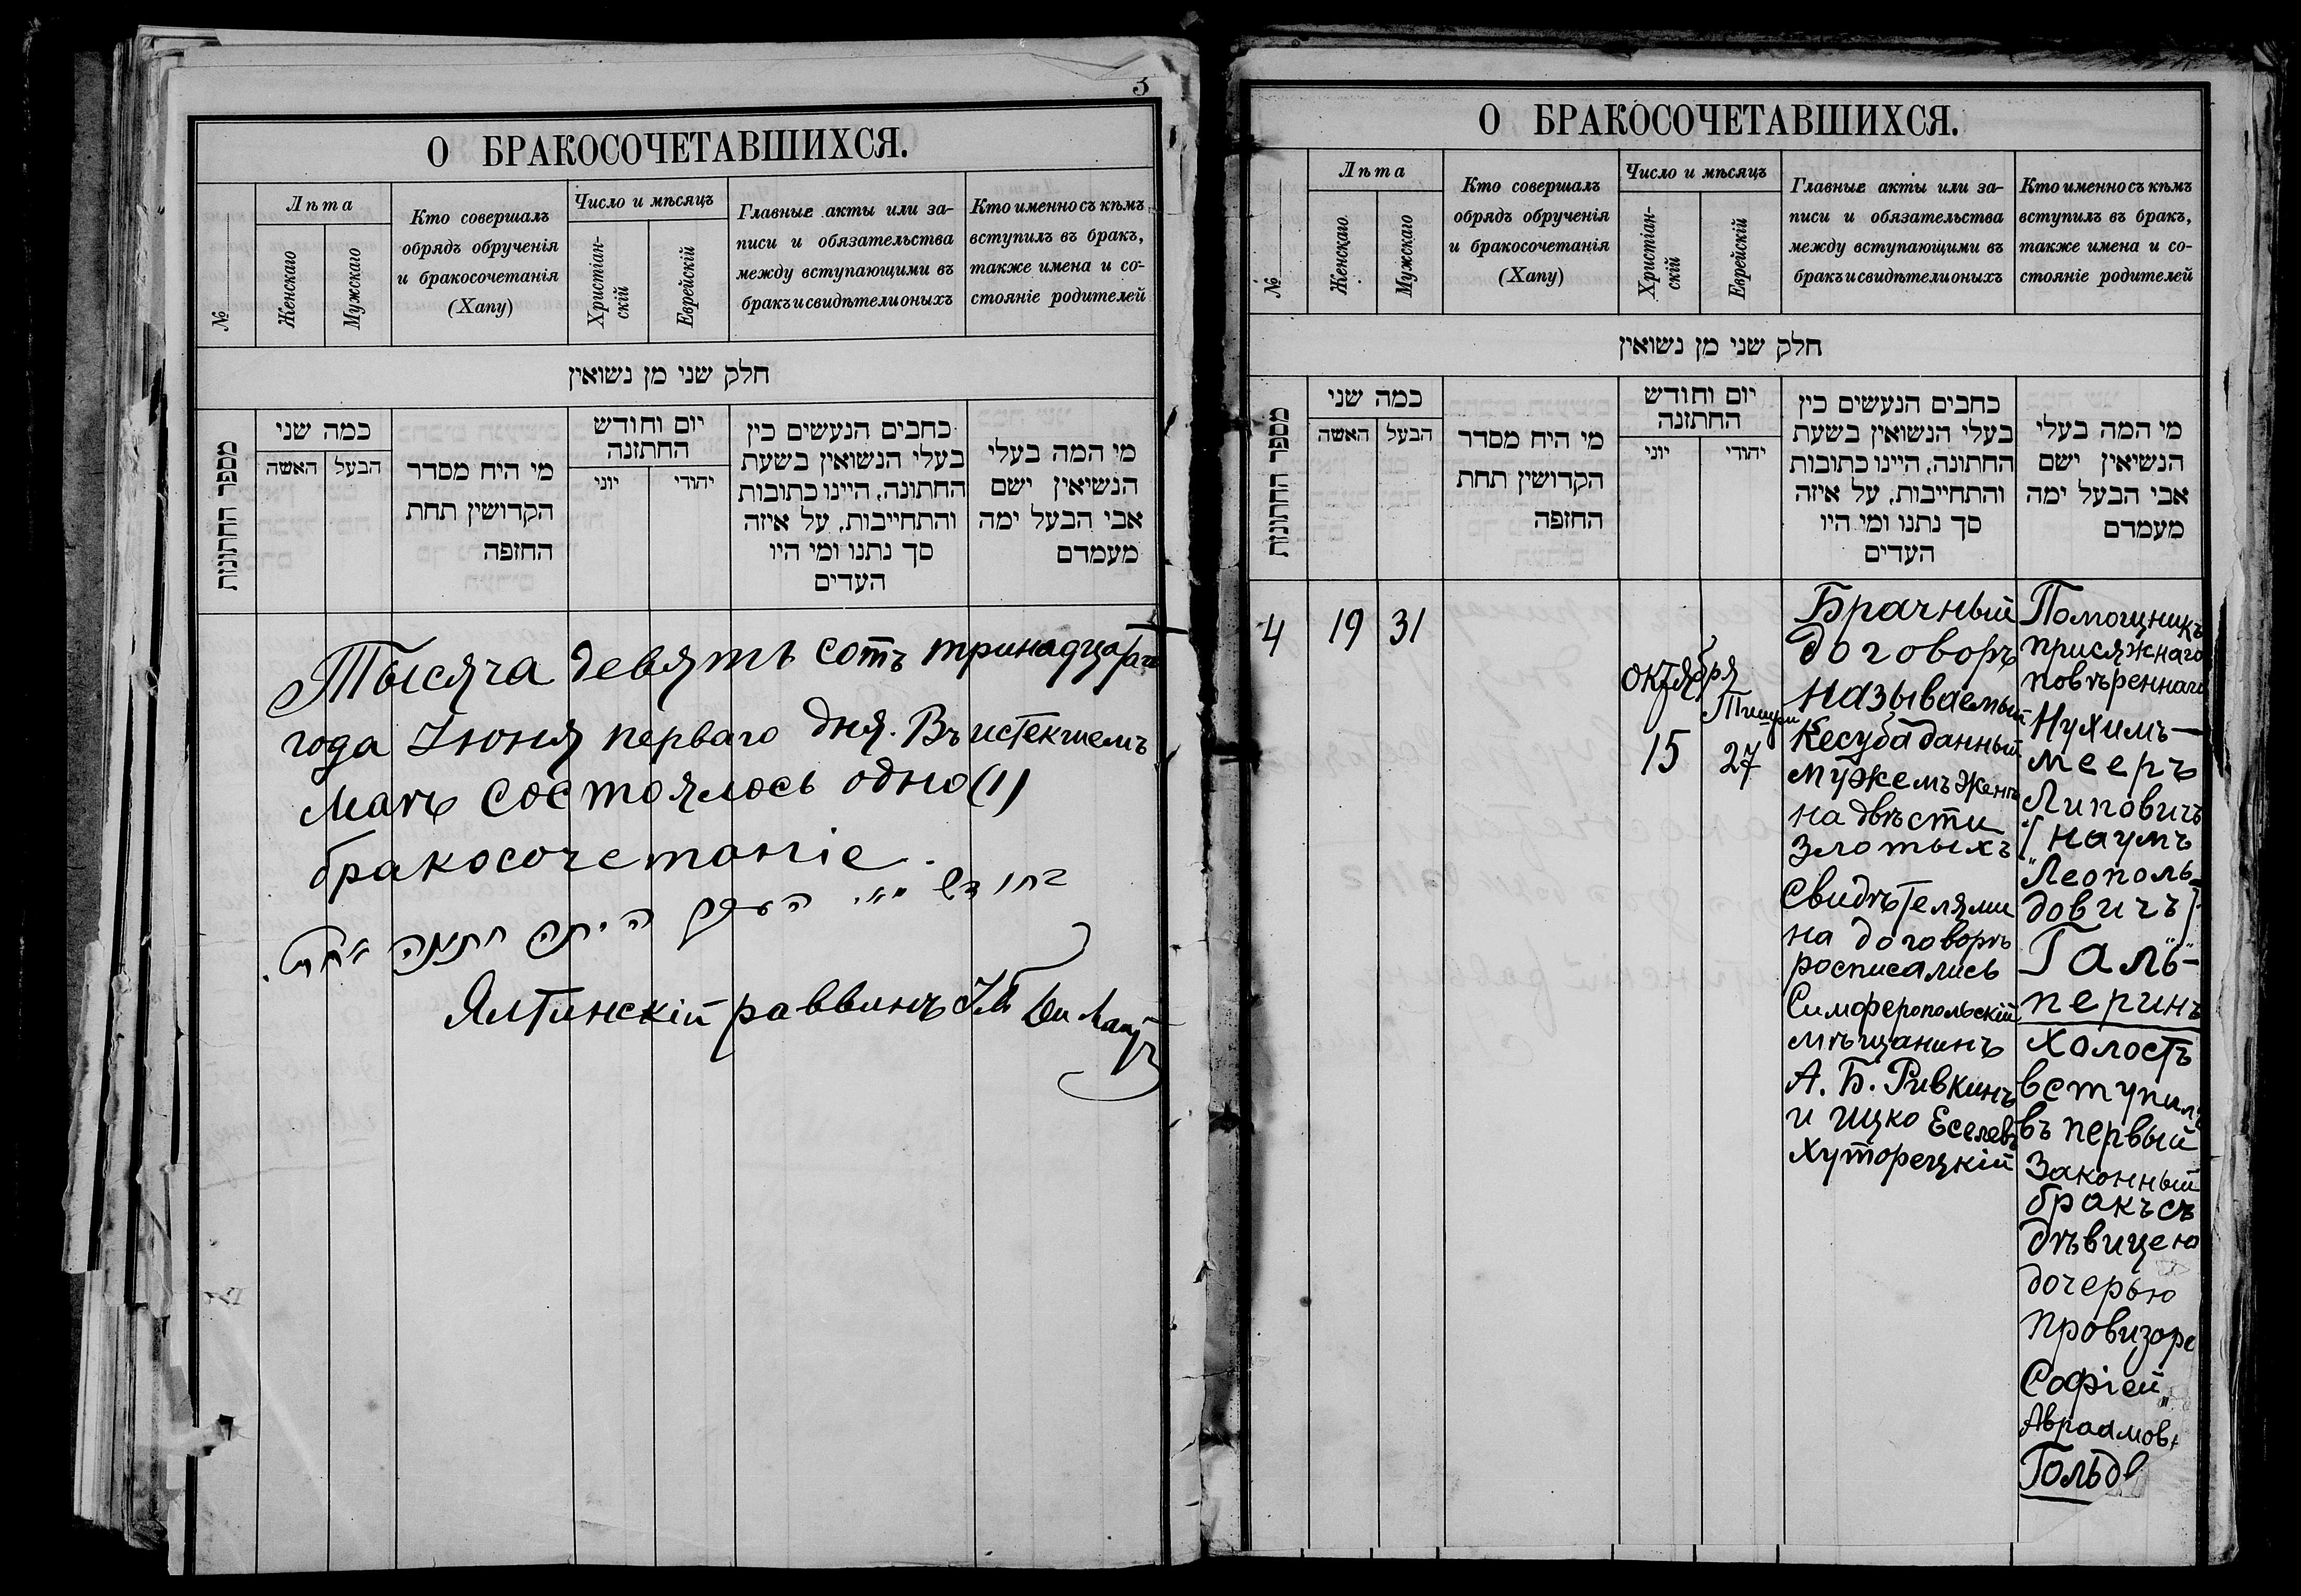 3
О БРАКОСОЧЕТАВШИХСЯ.
№
Лѣта
Женскаго
Мужскаго
Кто совершалъ
обрядъ обрученія
и бракосочетанія
(Хапу)
Число и мѣсяцъ
Христіан-
скій
Еврейскій
Главные акты или за-
писи и обязательства
между вступающими въ
бракъ и свидѣтели оныхъ
Кто именно съ кѣмъ
вступилъ въ бракъ,
также имена и со-
стояніе родителей
חלק שני מן נשואין
מספר החתונות
כמה שני
האשה
הבעל
מי היח מסדר
הקדושין תחת
החזפה
יום וחודש
החתזנה
יוני
יהודי
כחבים הנעשים כין
בעלי הנשואין בשעת
החתונה, היינו כתובות
והתחייבות, על איזה
סך נתנו ומי היו
העדים
מי המה בעלי
הנשיאין ישם
אבי הבעל ימה
מעמדם
Тысяча девять сотъ тринадцатаго
года Іюня перваго дня. Въ истекшемъ
маѣ состоялось одно (1)
бракосочетаніе.
Ялтинскій раввинъ
О БРАКОСОЧЕТАВШИХСЯ.
№
Лѣта
Женскаго
Мужскаго
Кто совершалъ
обрядъ обрученія
и бракосочетанія
(Хапу)
Число и мѣсяцъ
Христіан-
скій
Еврейскій
Главные акты или за-
писи и обязательства
между вступающими въ
бракъ и свидѣтели оныхъ
Кто именно съ кѣмъ
вступилъ въ бракъ,
также имена и со-
стояніе родителей
חלק שני מן נשואין
מספר החתונות
כמה שני
האשה
הבעל
מי היח מסדר
הקדושין תחת
החזפה
יום וחודש
החתזנה
יוני
יהודי
כחבים הנעשים כין
בעלי הנשואין בשעת
החתונה, היינו כתובות
והתחייבות, על איזה
סך נתנו ומי היו
העדים
מי המה בעלי
הנשיאין ישם
אבי הבעל ימה
מעמדם
4
19
31
октября
15
Тишри
27
Брачный
договоръ
называемый
Кесуба данный
мужемъ женѣ
на двѣсти
злотыхъ
Свидѣтелями
на договорѣ
росписались
Симферопольскій
мѣщанинъ
А. Б. Ривкинъ
и Ицко Еселевъ
Хуторецкій
Помощникъ
присяжнаго
повѣреннаго
Нухимъ-
Мееръ
Липовичъ
(Наумъ
Леополь-
довичъ)
Галь-
перинъ
холостъ
вступилъ
въ первый
законный
бракъ съ
дѣвицею
дочерью
провизора
Софіей
Авраамов
Гольд